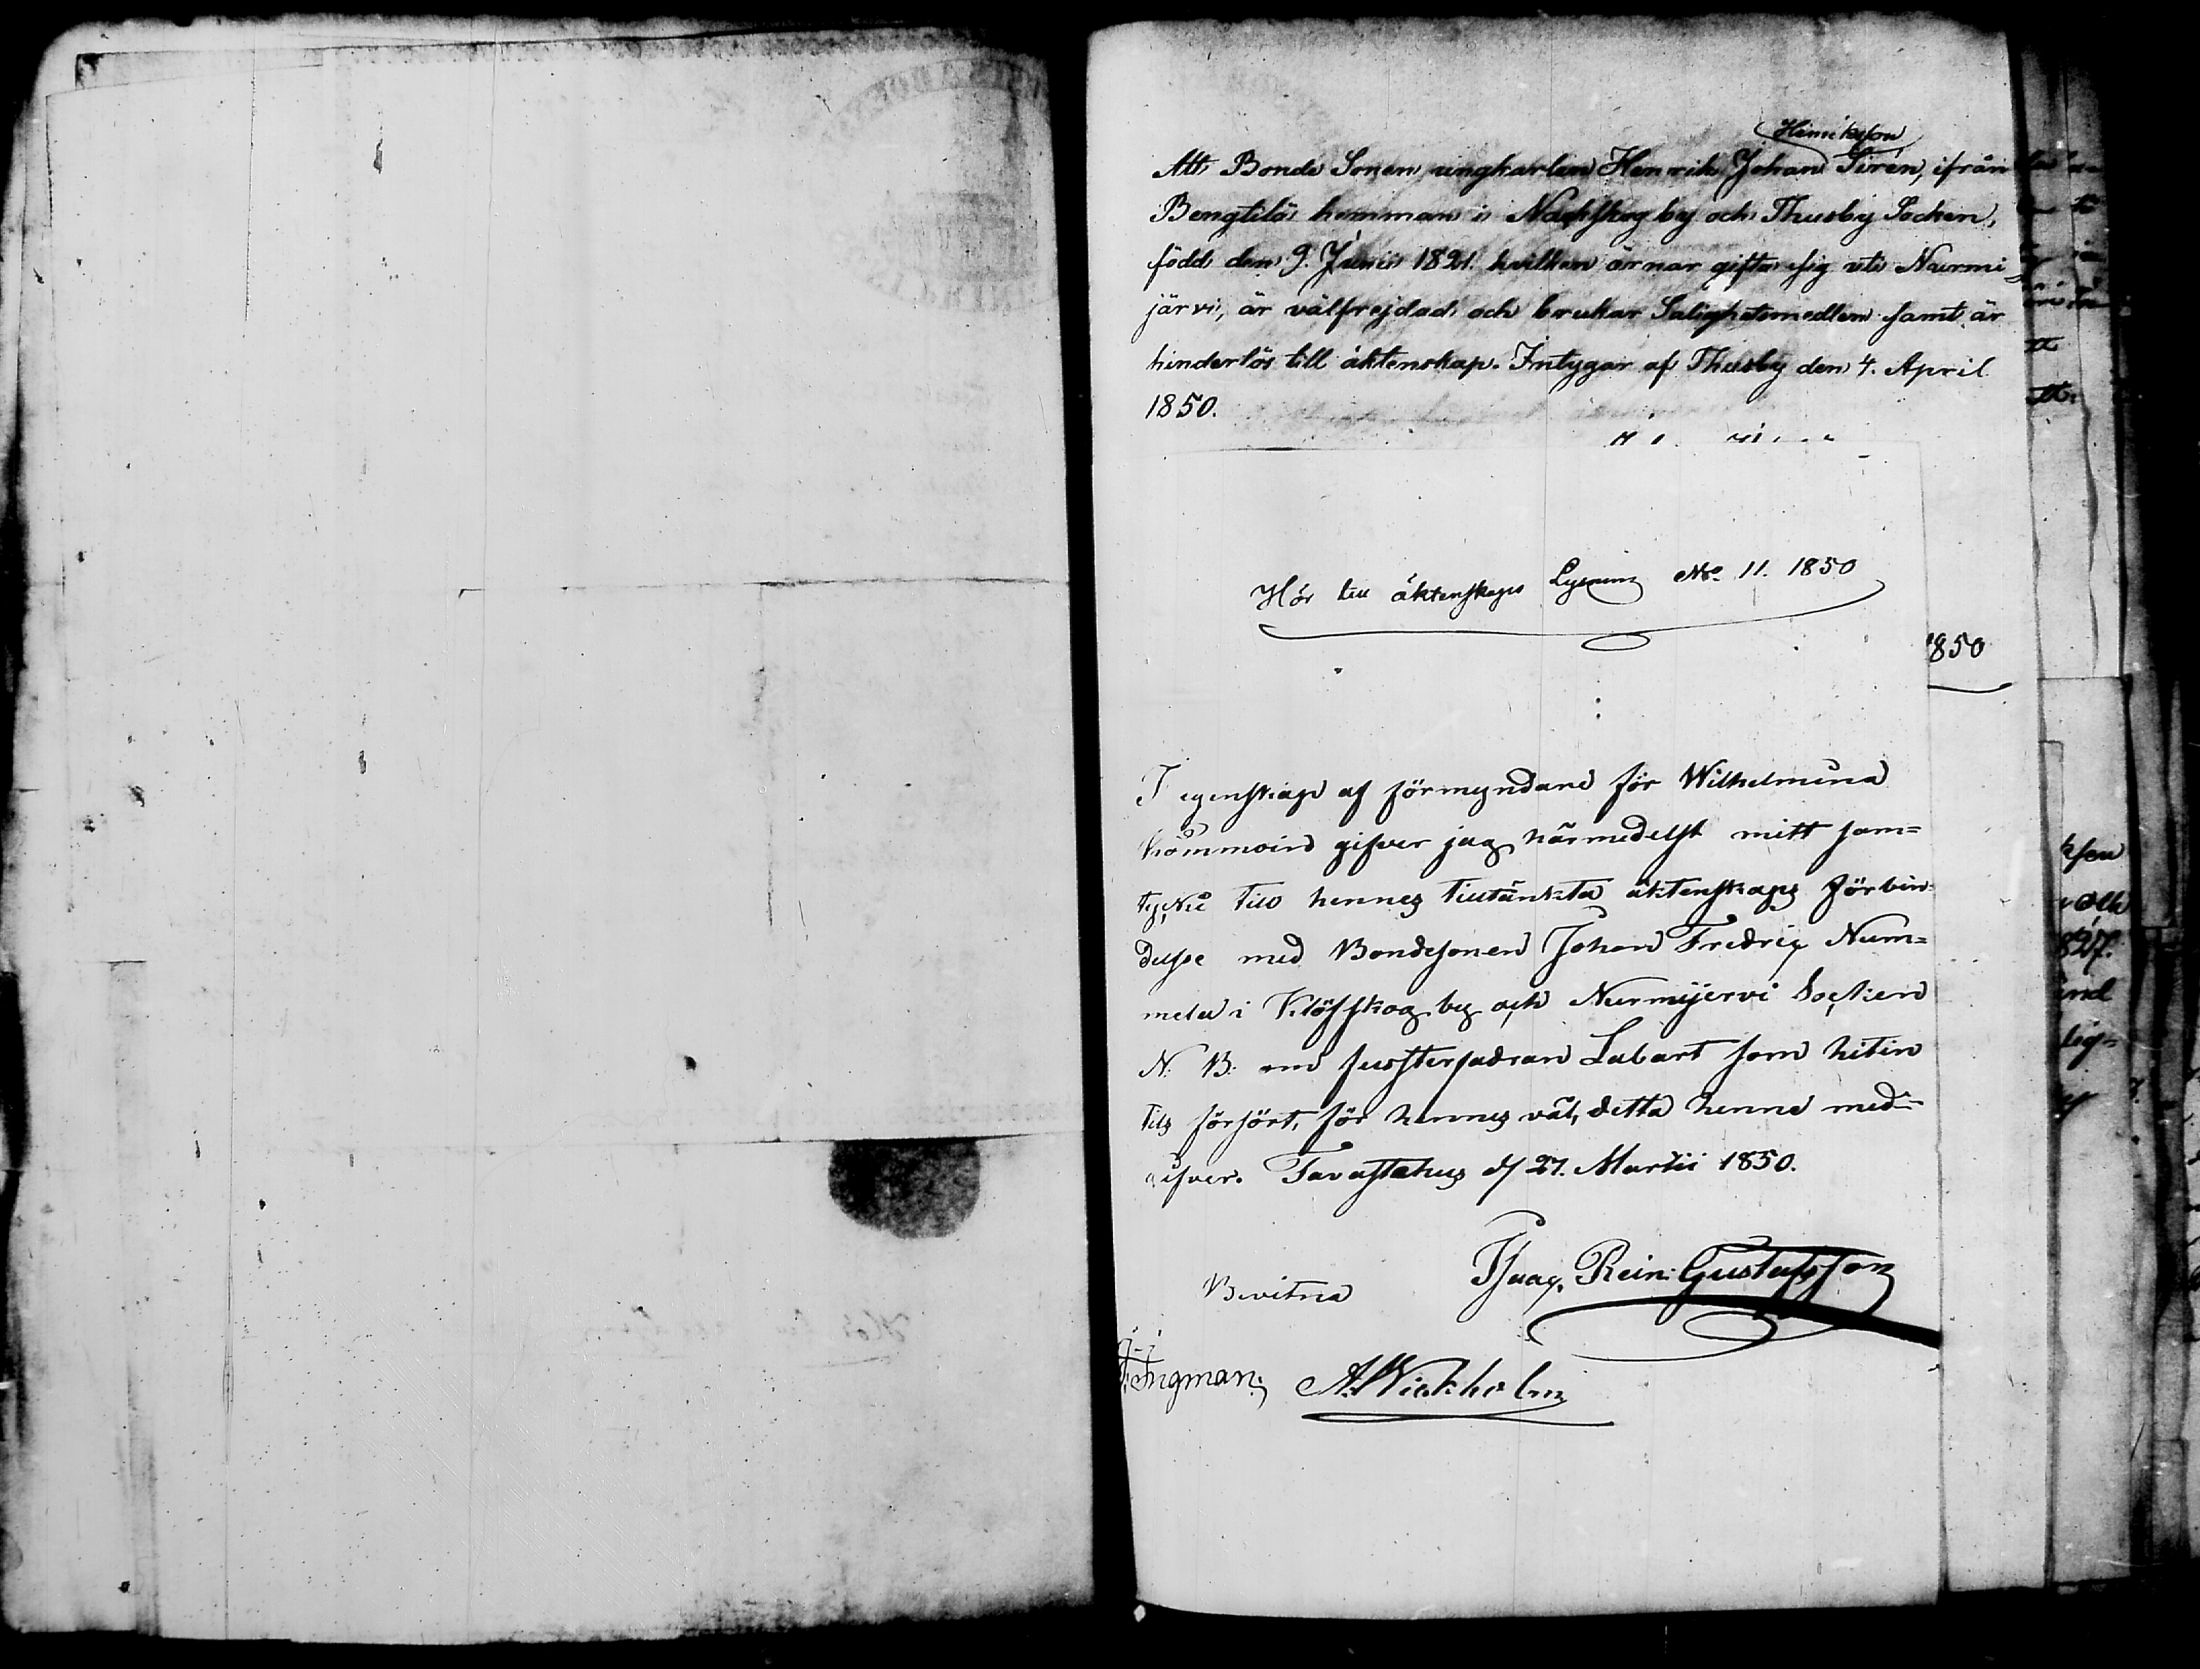 Henriksson
Att Bonde Sonen ungkarlen Henrik Johan Sirén, ifrån
Bengtilä hemman i Nackskog by och Thusby Socken,
född den 9. Junii 1821. hvilken ärnar gifta sig uti Nurmi
järvi, är välfrejdad och brukar Salighetsmedlen samt är
hinderlös till äktenskap. Intygar af Thusby den 4. April
1850.
Hör till äktenskaps Lysning No. 11. 1850
1850
I egenskap af förmyndare för Wilhelmina
gifver jag härmedelst mitt sam=
tycke till hennes tilltänkta äktenskaps förbin=
delse med Bondesonen Johan Fredrig Num=
mela i Klöfskog by och Nurmijervi Socken
N: B: som hitin
tils försört, för hennes väl, detta henne med=
gifver. Tavastehus d/ 27. Martii 1850.
Isaac. Rein: Gustafsson
Bevitna
Ingman; A: Wickholm